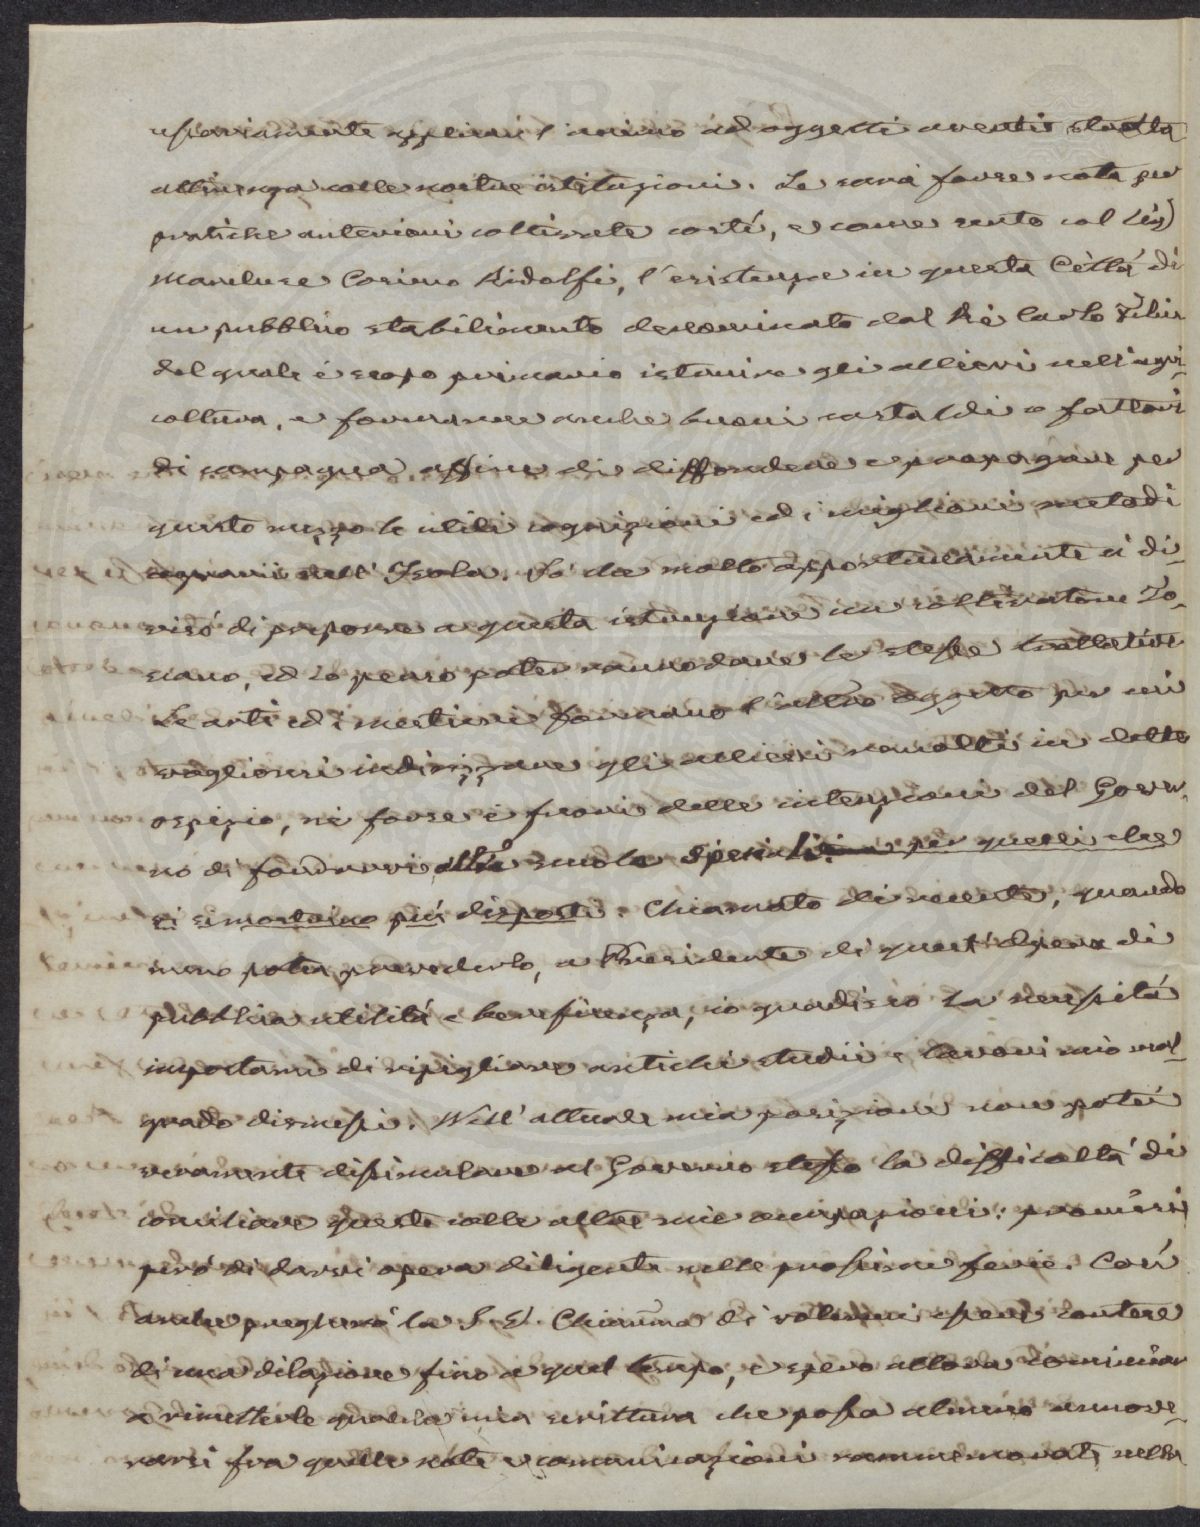 essariamente applicare l'animo ad oggetti aventi stretta
attinenza colle nostre istituzioni. Le sarà forse nota per
pratiche anteriori coltivate costì, e come sento col Sig.r
Marchese Cosimo Ridolfi, l'esistenza in questa Città di
un pubblico stabilimento denominato dal Rè Carlo Felice
del quale è scopo primario istruire gli allievi nell'agri-
coltura, e formarne anche buoni castaldi o fattori
di campagna, affine di diffondere e propagare per
questo mezzo le utili cognizioni ed i migliori metodi
agrarii nell'Isola. So che molto opportunamente si di-
visò di preporre a questa istruzione un coltivatore To-
scano, ed io penso poter rannodare le stesse trattative
Le arti ed i mestieri formano l'altro oggetto per cui
voglionsi indirizzare gli allievi raccolti in detto
ospizio, nè forse è fuori delle intenzioni del Gover-
no di fondarvi altre scuole speciali per quelli che
vi si mostrino più disposti. Chiamato di recente, quando
meno potea prevederlo, a Presidente di quest'Opera di
pubblica utilità e beneficenza, io quindi veggo la necessità
importarmi di ripigliare antichi studii e lavori mio mal-
grado dismessi. Nell'attuale mia posizione non potei
veramente dissimulare al Governo stesso la difficoltà di
conciliare queste colle altre mie occupazioni: promisi
però di darvi opera diligente nelle prossime ferie. Così
anche pregherò la S. V. Chiarissima di volermi essere cortese
di una dilazione fino a quel tempo, e spero allora cominciare
a rimetterle qualche mia scrittura che possa almeno annove-
rarsi fra quelle note e comunicazioni rammemorate nella